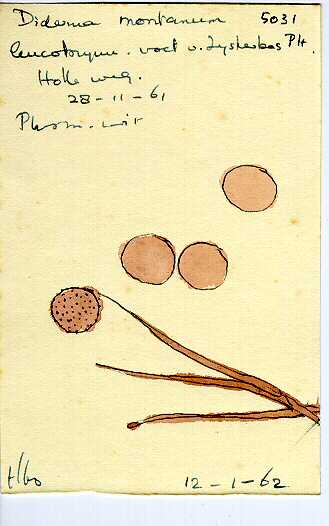 Diderma montanum 5031
leucobryum. voet v. Lijsterbes PH.
Holle weg.
28-11-61
Plasm. wit
12-1-62